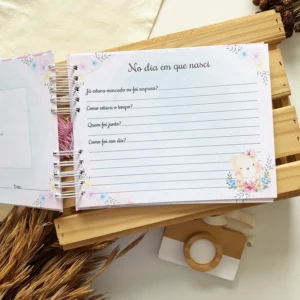 No dia em que nasci
Já estava marcado ou foi surpresa?
Como estava o tempo?
Quem foi junto?
Como foi seu dia?